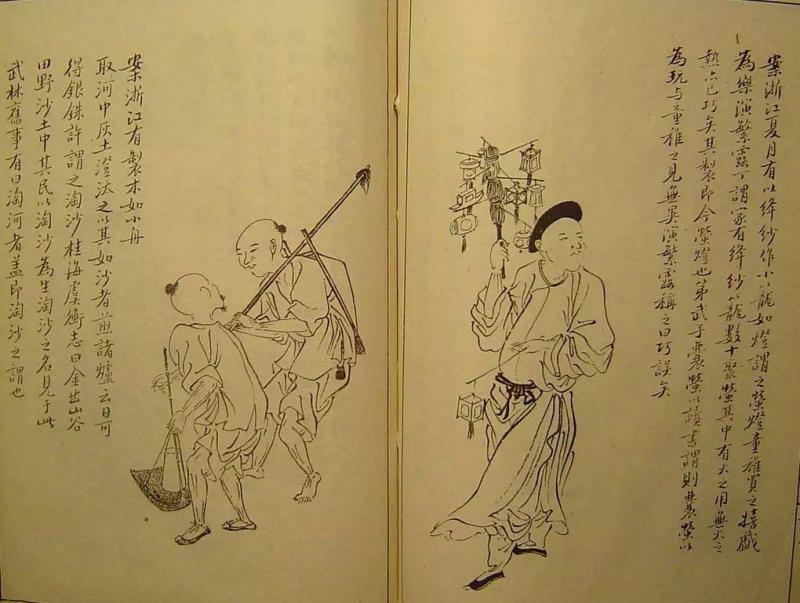 案浙江夏月有以絳紗作小籠如燈謂之螢燈童稚買之嬉戲
為樂演繁露丁謂家有絳紗籠數十聚螢其中有火之用無火之
熱亦已巧矣其製即今螢燈也第武子囊螢以讀書謂則囊螢以
為玩与童稚之見無異演繁露稱之曰巧誤矣
案浙江有製木如小舟
取河中灰土澄汰之以其如沙者煎諸爐云日可
得銀銖許謂之淘沙桂海虞衡志曰金出山谷
田野沙土中其民以淘沙為生淘沙之名見于此
武林舊事有曰淘河者盖即淘沙之謂也